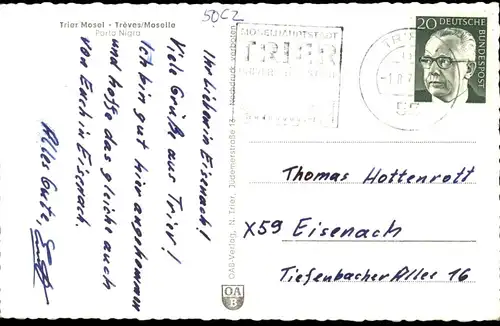 Trier Mosel • Trèves/Moselle
Porta Nigra
50C2
Ihr lieben in Eisenach!
Viele Grüße aus Trier!
Ich bin gut hier angekommen
und hoffe das gleiche auch
von Euch in Eisenach.
Alles Gute,
OAB-Verlag, N. Trier, Jüdemerstraße 16 - Nachdruck verboten
OA
B
MOSELHAUPTSTADT
TRIER
20 DEUTSCHE
BUNDESPOST
Thomas Hottenrott
X59 Eisenach
Tiefenbacher Allee 16